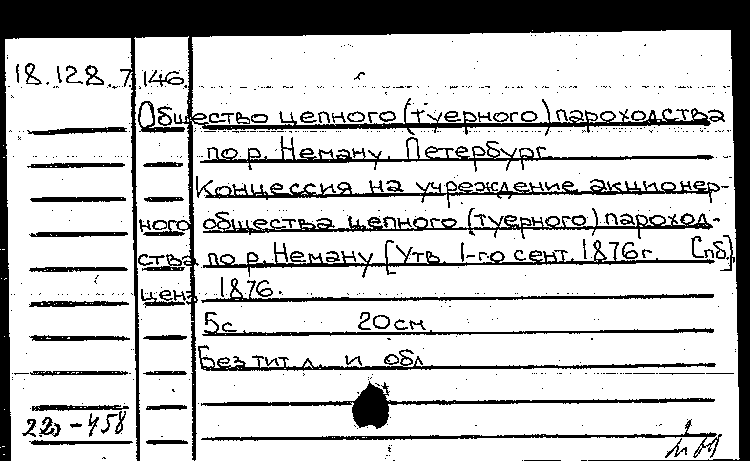 18.128.7.146
Общество цепного (туерного) пароходства
по р. Неману. Петербург.
Концессия на учреждение акционер-
ного общества цепного (туерного) пароход-
ства по р. Неману [Утв. 1-го сент. 1876 г. [Пб],
ценз. 1876.
5с. 20см.
Без тит. л. и обл.
22э-458